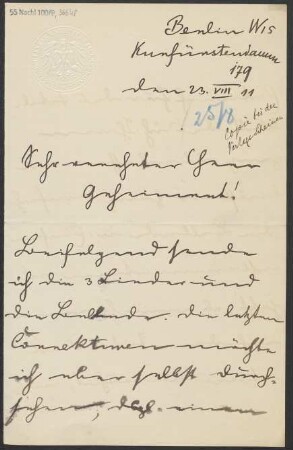 55 Nachl 100/A,
Berlin W15
Kurfürstendamm
179
den 23. VIII 11
25/8
Copie bei den
Sehr verehrter Herr
Geheimrat!
Beifolgend sende
ich die 3 Lieder und
die Ballade. Die letzten
Correkturen möchte
ich aber selbst durch-
sehen, dgl. einen